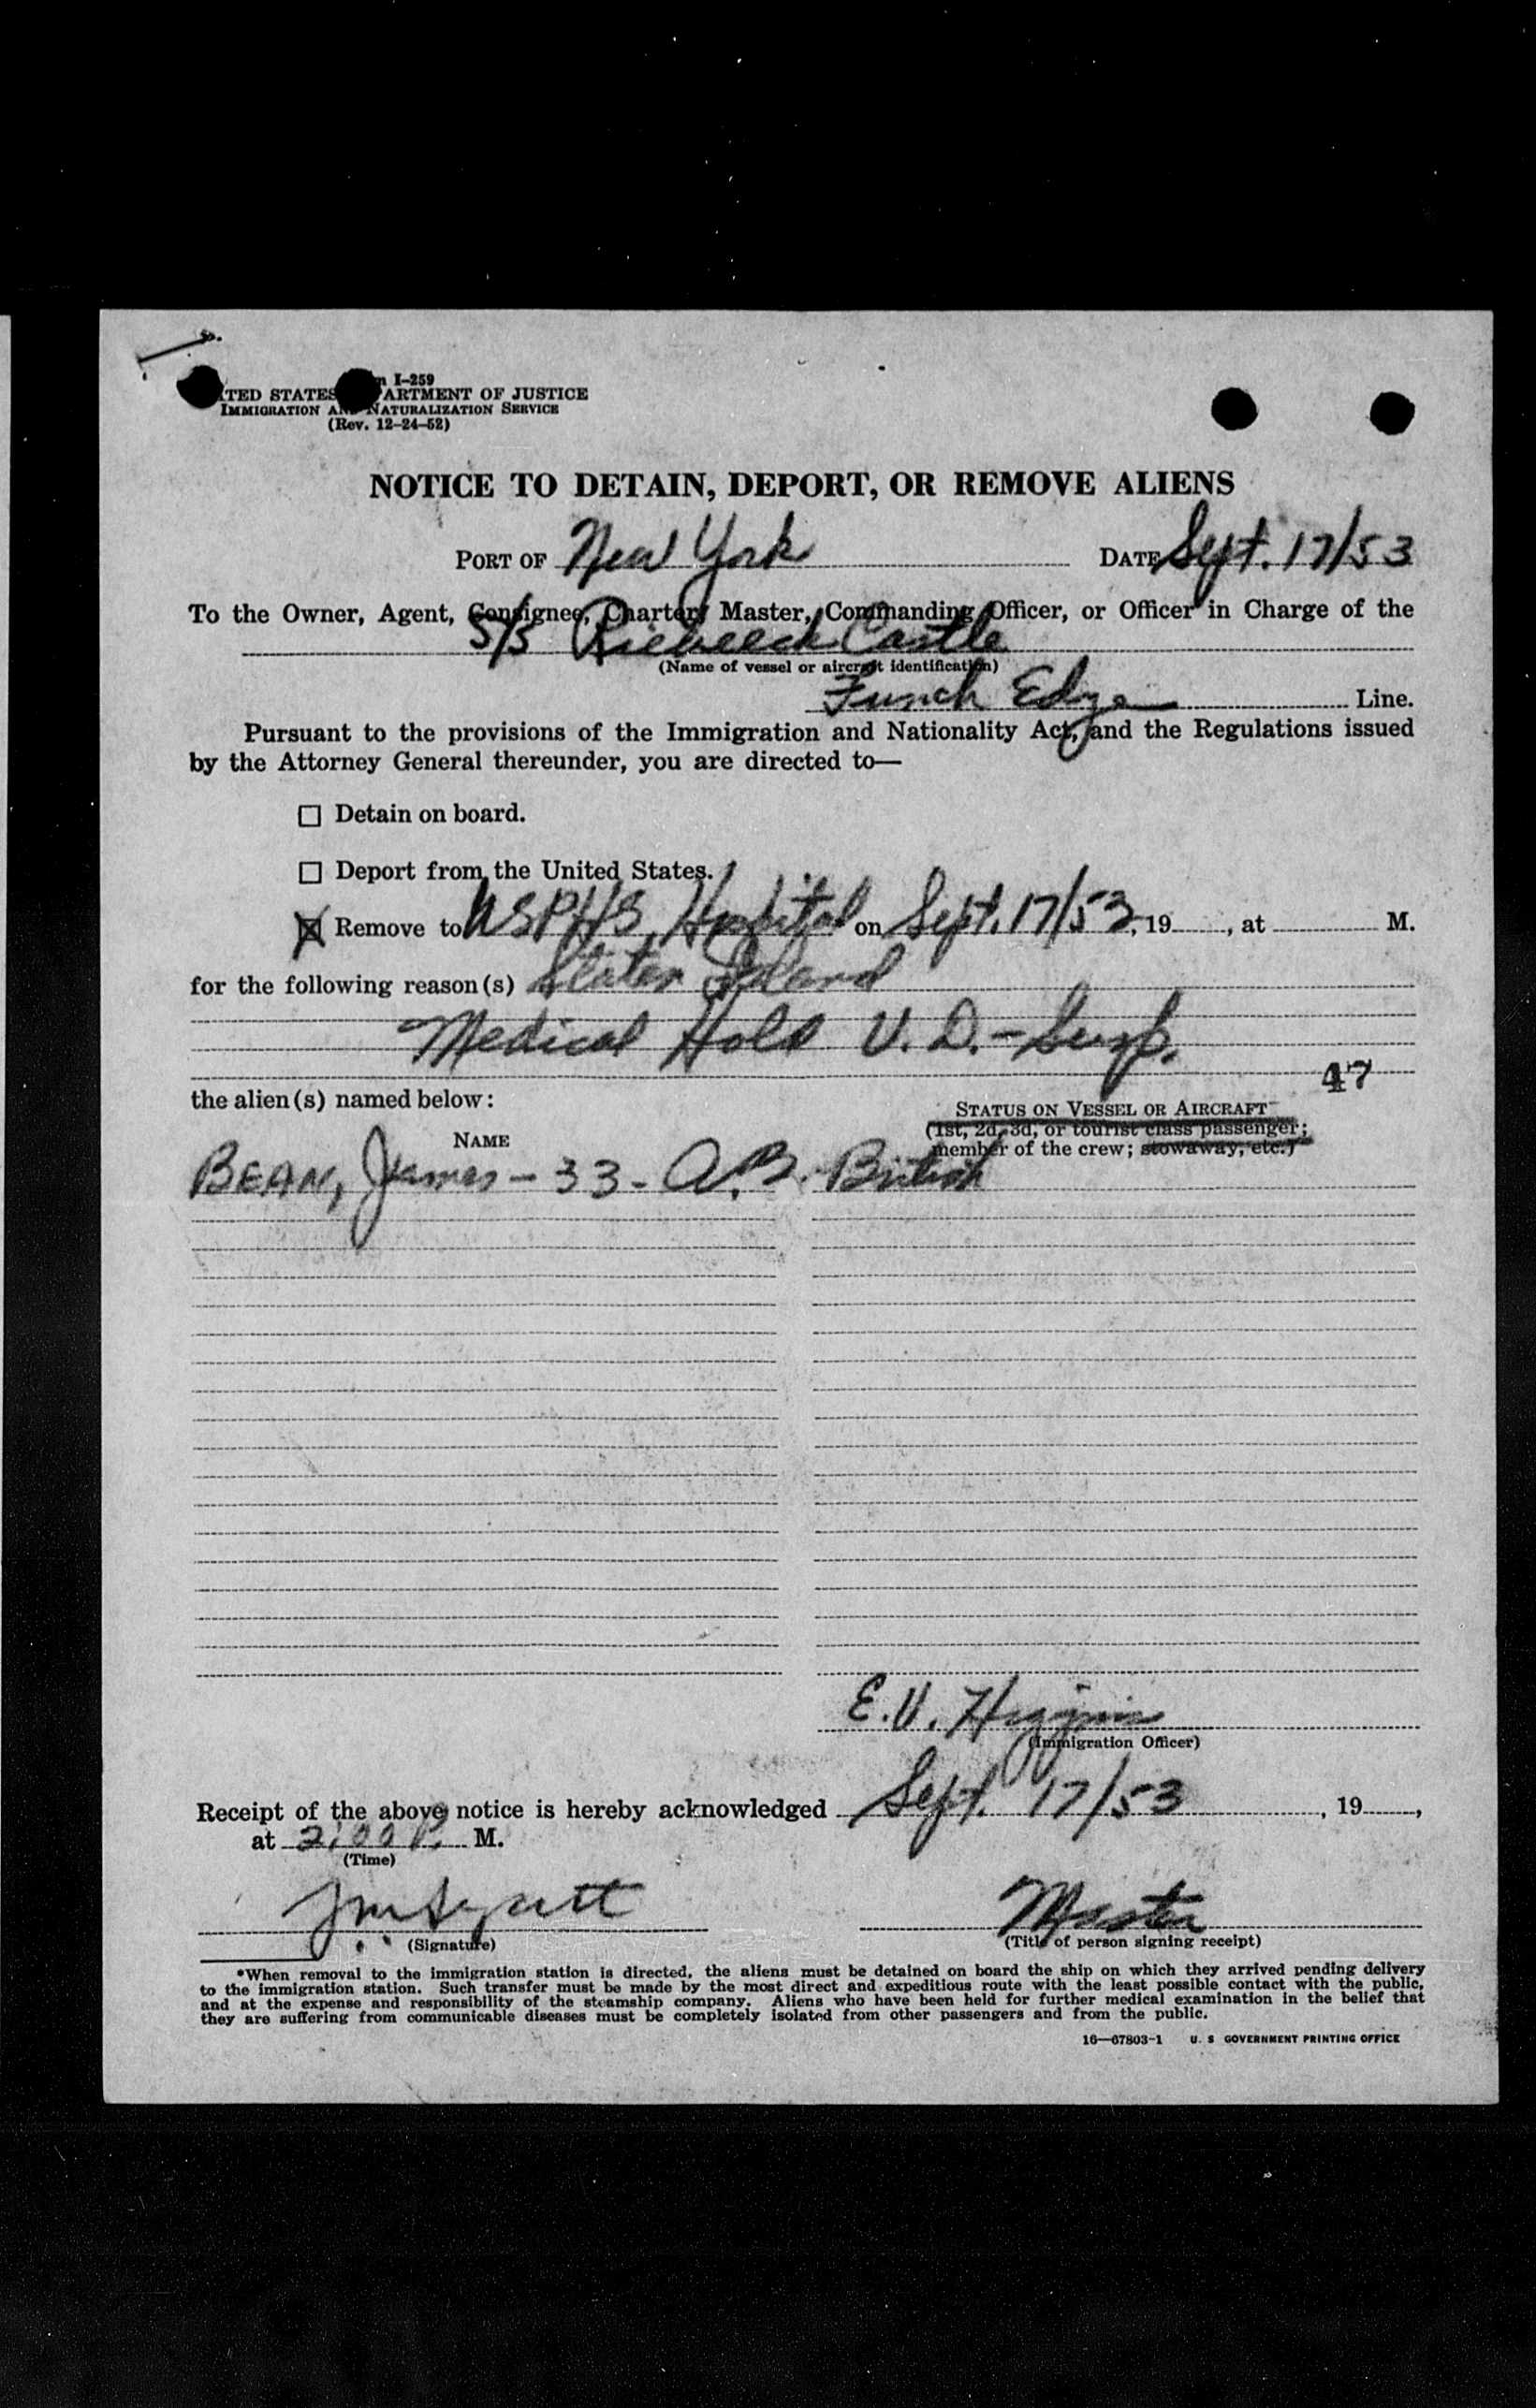 I-259
TED STATES ARTMENT OF JUSTICE
IMMIGRATION AND NATURALIZATION SERVICE
(Rev. 12-24-52)
NOTICE TO DETAIN, DEPORT, OR REMOVE ALIENS
PORT OF New York DATE Sept. 17/53
To the Owner, Agent, Consignee, Charter, Master, Commanding Officer, or Officer in Charge of the
S/S Riebeeck Castle
(Name of vessel or aircraft identification)
Funch Edye Line.
Pursuant to the provisions of the Immigration and Nationality Act, and the Regulations issued
by the Attorney General thereunder, you are directed to—
☐ Detain on board.
☐ Deport from the United States.
☒ Remove to USPHS Hospital on Sept. 17/53, 19 , at M.
for the following reason(s) Staten Island
Medical Hold V.D.- Susp.
47
the alien(s) named below:
STATUS ON VESSEL OR AIRCRAFT
(1st, 2d, 3d, or tourist class passenger;
NAME
member of the crew; stowaway, etc.)
BEAN, James - 33 - A.B. British
E.V. Higgins
(Immigration Officer)
Receipt of the above notice is hereby acknowledged Sept. 17/53, 19 ,
at 2:00 P. M.
(Time)
Master
(Signature) (Title of person signing receipt)
*When removal to the immigration station is directed, the aliens must be detained on board the ship on which they arrived pending delivery
to the immigration station. Such transfer must be made by the most direct and expeditious route with the least possible contact with the public,
and at the expense and responsibility of the steamship company. Aliens who have been held for further medical examination in the belief that
they are suffering from communicable diseases must be completely isolated from other passengers and from the public.
16—67803-1 U. S GOVERNMENT PRINTING OFFICE